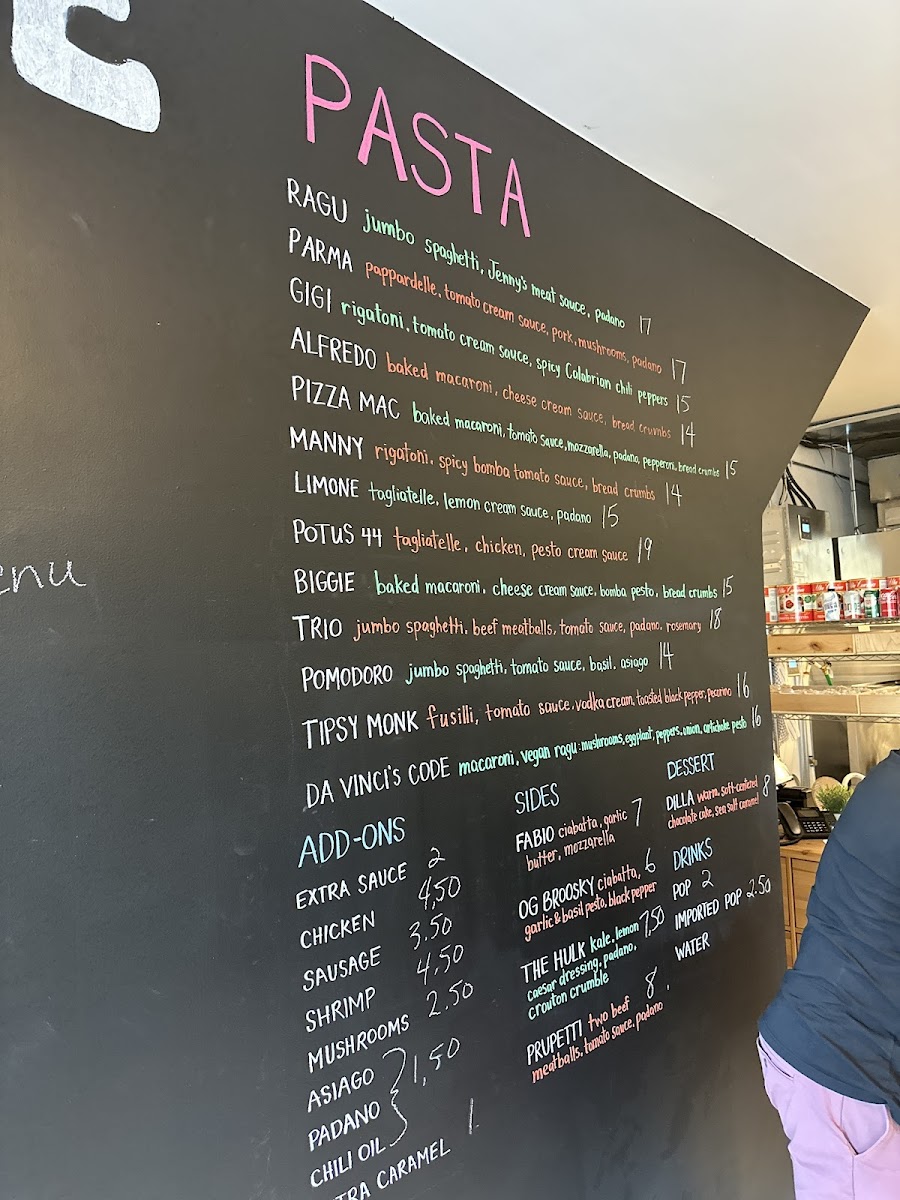 E
PASTA
RAGU jumbo spaghetti, Jenny's meat sauce, padano 17
PARMA pappardelle, tomato cream sauce, pork, mushrooms, padano 17
GIGI rigatoni, tomato cream sauce, spicy Calabrian chili peppers 15
ALFREDO baked macaroni, cheese cream sauce, bread crumbs 14
PIZZA MAC baked macaroni, tomato sauce, mozzarella, padano, pepperoni, bread crumbs 15
MANNY rigatoni, spicy bomba tomato sauce, bread crumbs 14
LIMONE tagliatelle, lemon cream sauce, padano 15
POTUS 44 tagliatelle, chicken, pesto cream sauce 19
BIGGIE baked macaroni, cheese cream sauce, bomba pesto, bread crumbs 15
TRIO jumbo spaghetti, beef meatballs, tomato sauce, padano, rosemary 18
POMODORO jumbo spaghetti, tomato sauce, basil, asiago 14
TIPSY MONK fusilli, tomato sauce, vodka cream, toasted black pepper, pecorino 16
DA VINCI'S CODE macaroni, vegan ragu: mushrooms, eggplant, peppers, onion, artichoke pesto 16
enu
ADD-ONS
EXTRA SAUCE 2
CHICKEN 4,50
SAUSAGE 3.50
SHRIMP 4.50
MUSHROOMS 2.50
ASIAGO
PADANO 1,50
CHILI OIL
TRA CARAMEL 1.
SIDES
FABIO ciabatta, garlic 7
butter, mozzarella
OG BROOSKY ciabatta, 6
garlic & basil pesto, black pepper
THE HULK kale, lemon 7,50
caesar dressing, padano,
crouton crumble
PRUPETTI two beef 8
meatballs, tomato sauce, padano
DESSERT
DILLA warm, soft-centered 8
chocolate cake, sea salt caramel
DRINKS
POP 2
IMPORTED POP 2.50
WATER